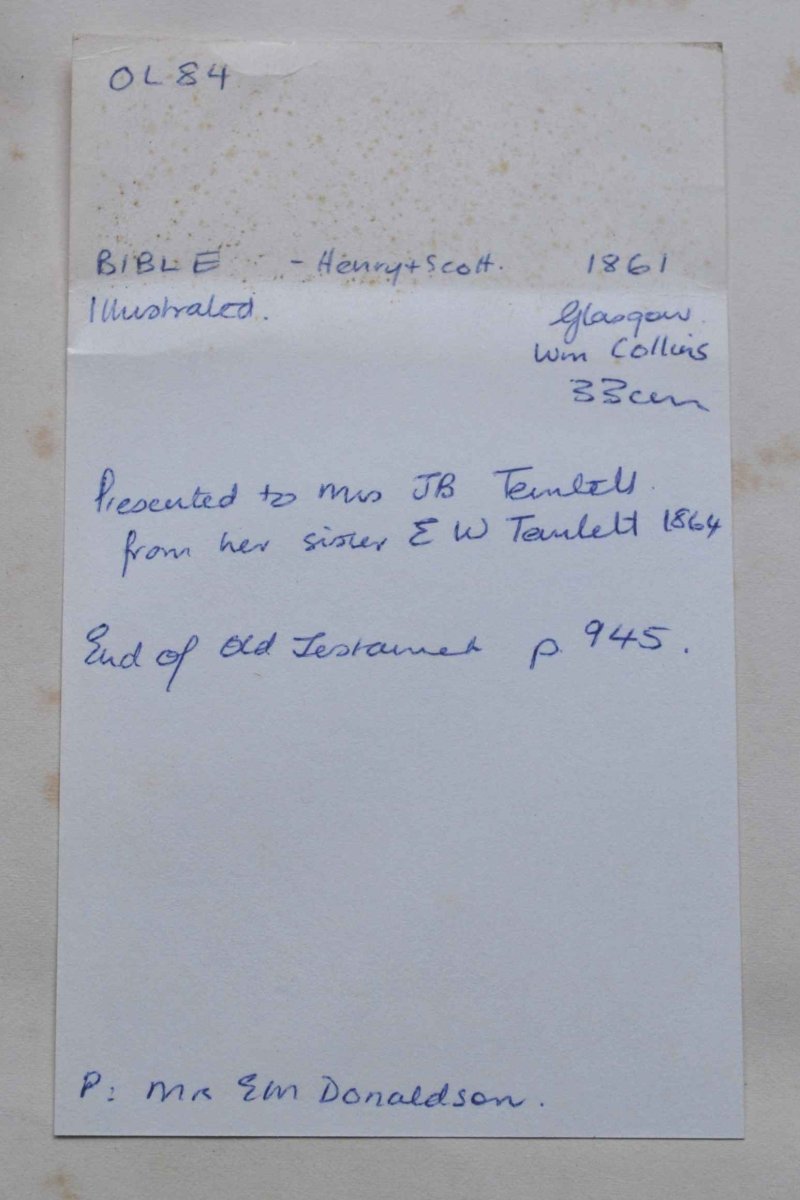 OL84
BIBLE - Henry + Scott. 1861
Illustrated. Glasgow.
Wm Collins
33cm
Presented to Mrs JB
from her sister E W 1864
End of Old Testament p. 945.
P: EM Donaldson.